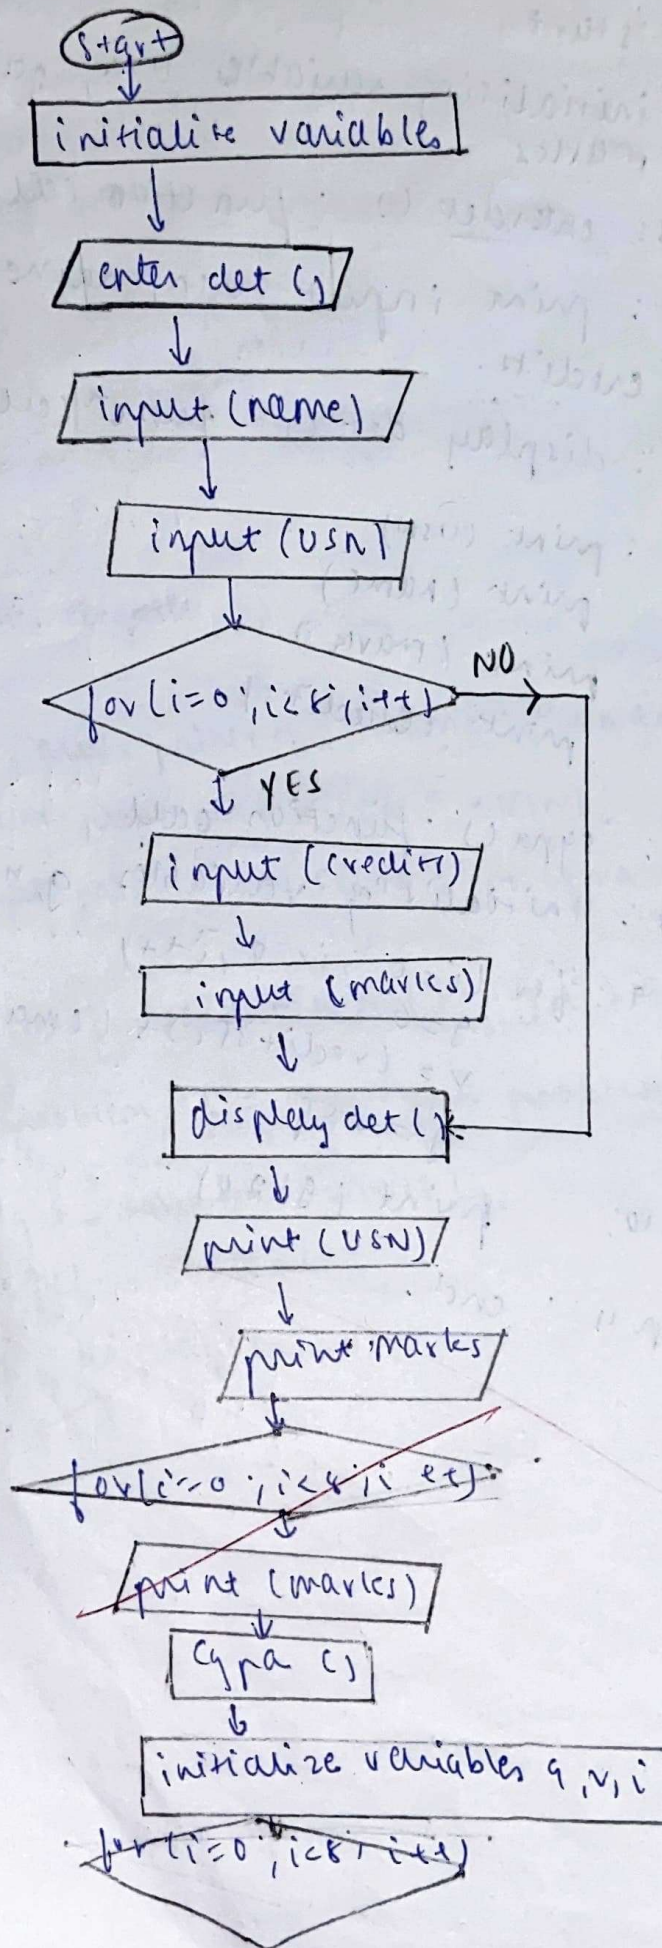 Start
initialize variables
enter det ()
input (name)
input (USN)
for (i=0; i<8; i++)
NO
YES
input (credits)
input (marks)
display det ()
print (USN)
print marks
for (i=0; i<8; i++)
print (marks)
Cgpa ()
initialize variables q, r, i
for (i=0; i<8; i++)